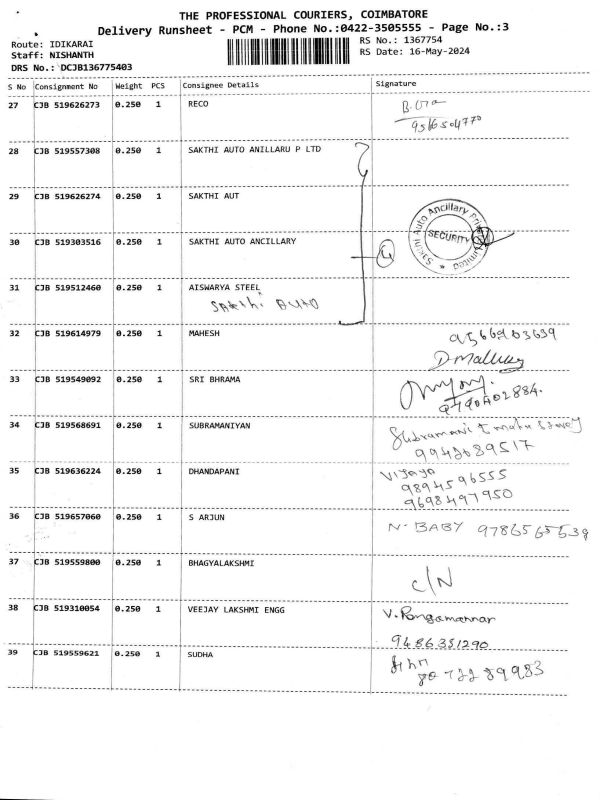 THE PROFESSIONAL COURIERS, COIMBATORE
Delivery Runsheet - PCM - Phone No.:0422-3505555 - Page No.:3
Route: IDIKARAI
RS No.: 1367754
Staff: NISHANTH
RS Date: 16-May-2024
DRS No.: DCJB136775403
S No Consignment No Weight PCS Consignee Details Signature
27 CJB 519626273 0.250 1 RECO
28 CJB 519557308 0.250 1 SAKTHI AUTO ANILLARU P LTD
29 CJB 519626274 0.250 1 SAKTHI AUT
Sakthi Auto Ancillary Private Limited
SECURITY
30 CJB 519303516 0.250 1 SAKTHI AUTO ANCILLARY
4
31 CJB 519512460 0.250 1 AISWARYA STEEL
Sakthi AUTO
32 CJB 519614979 0.250 1 MAHESH
33 CJB 519549092 0.250 1 SRI BHRAMA
34 CJB 519568691 0.250 1 SUBRAMANIYAN
Subramani
35 CJB 519636224 0.250 1 DHANDAPANI
Vijaya
9894596555
9698497950
36 CJB 519657060 0.250 1 S ARJUN
N. BABY
37 CJB 519559800 0.250 1 BHAGYALAKSHMI
C/N
38 CJB 519310054 0.250 1 VEEJAY LAKSHMI ENGG
V. Rangamannar
9486351290
39 CJB 519559621 0.250 1 SUDHA